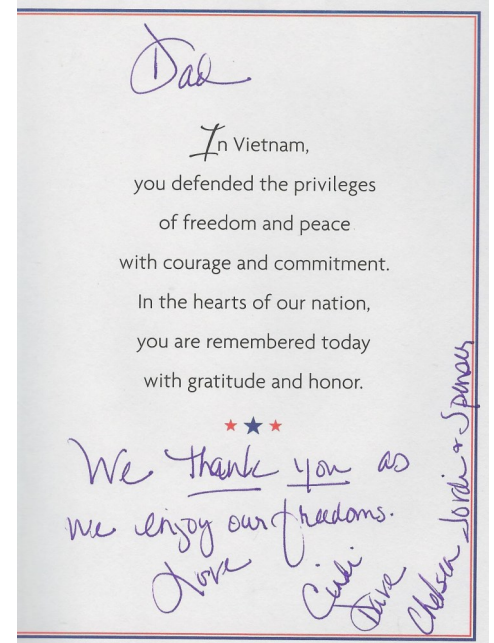 Dad
In Vietnam,
you defended the privileges
of freedom and peace
with courage and commitment.
In the hearts of our nation,
you are remembered today
with gratitude and honor.
We thank you as
we enjoy our freedoms.
Love
Cindi
Dave
Chelsea Jordi & Spenser